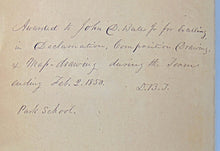 Awarded to John D. Bates Jr for excelling
in Declamation, Composition Drawing,
& Map-drawing during the Term
ending Feb. 2. 1850.
L.B.T.
Park School.